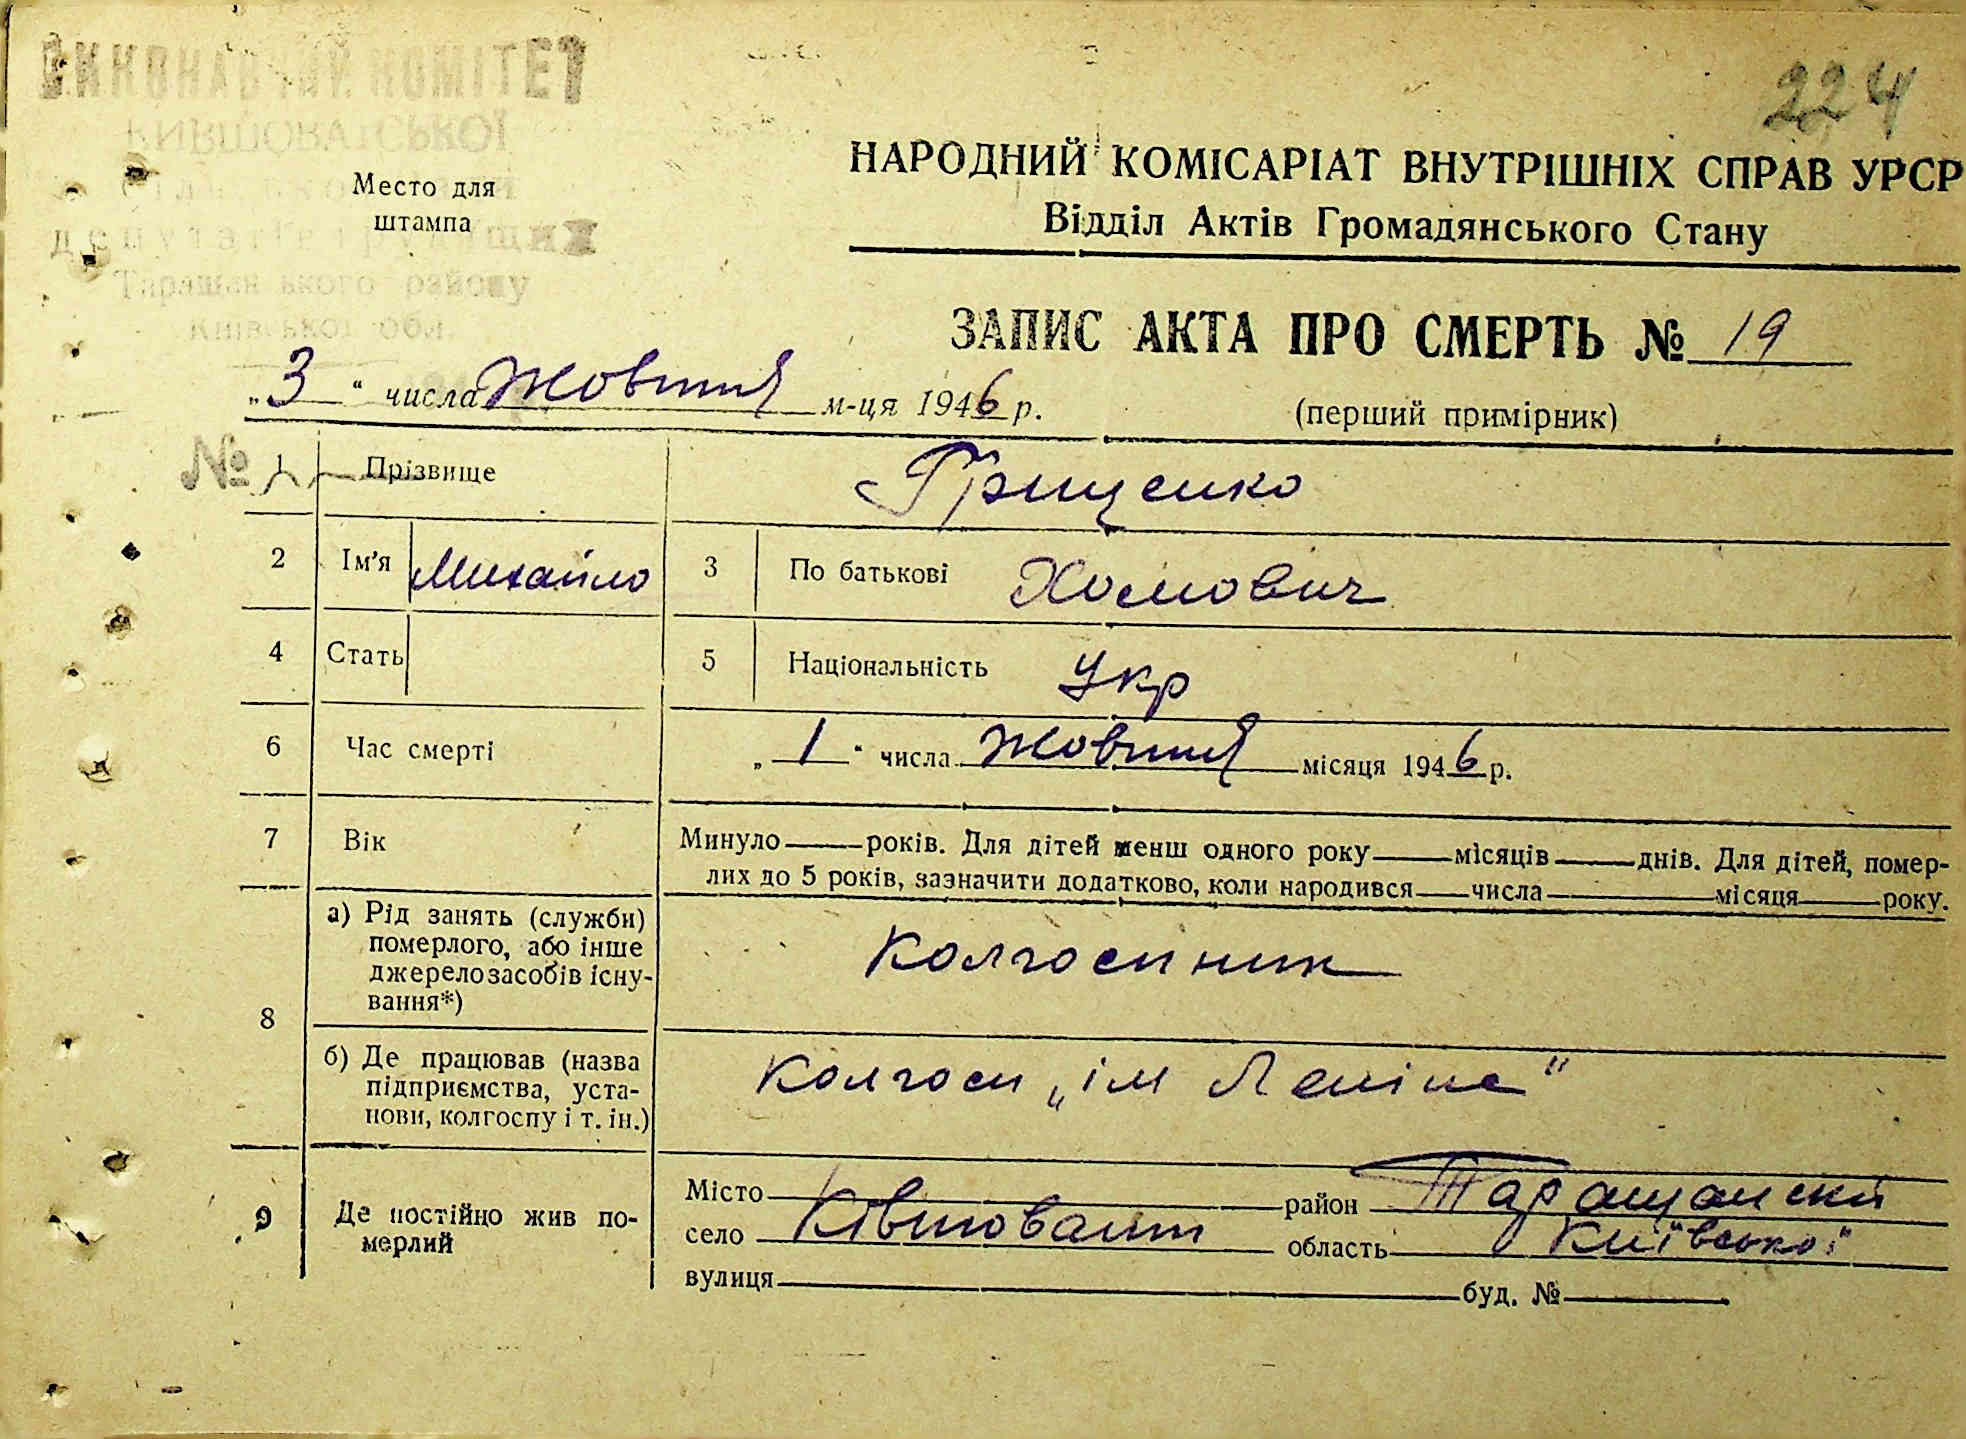 ВИКОНАВЧИЙ КОМІТЕТ
КИВШОВАТСЬКОЇ
депутатів трудящих
Таращанського району
Київської обл.
Место для
штампа
224
НАРОДНИЙ КОМІСАРІАТ ВНУТРІШНІХ СПРАВ УРСР
Відділ Актів Громадянського Стану
ЗАПИС АКТА ПРО СМЕРТЬ № 19
„3“ числа Жовтня м-ця 1946 р.
(перший примірник)
№
1 Прізвище Грищенко
2 Ім'я Михайло 3 По батькові Хомович
4 Стать 5 Національність Укр
6 Час смерті „1“ числа Жовтня місяця 1946 р.
7 Вік Минуло — років. Для дітей менш одного року — місяців — днів. Для дітей, помер-
лих до 5 років, зазначити додатково, коли народився — числа — місяця — року.
8 а) Рід занять (служби)
померлого, або інше
джерело засобів існу-
вання*)
Колгоспник
б) Де працював (назва
підприємства, уста-
нови, колгоспу і т. ін.)
Колгосп „ім Леніна"
9 Де постійно жив по-
мерлий
Місто район Таращанский
село Ківшоват область Київської
вулиця буд. №